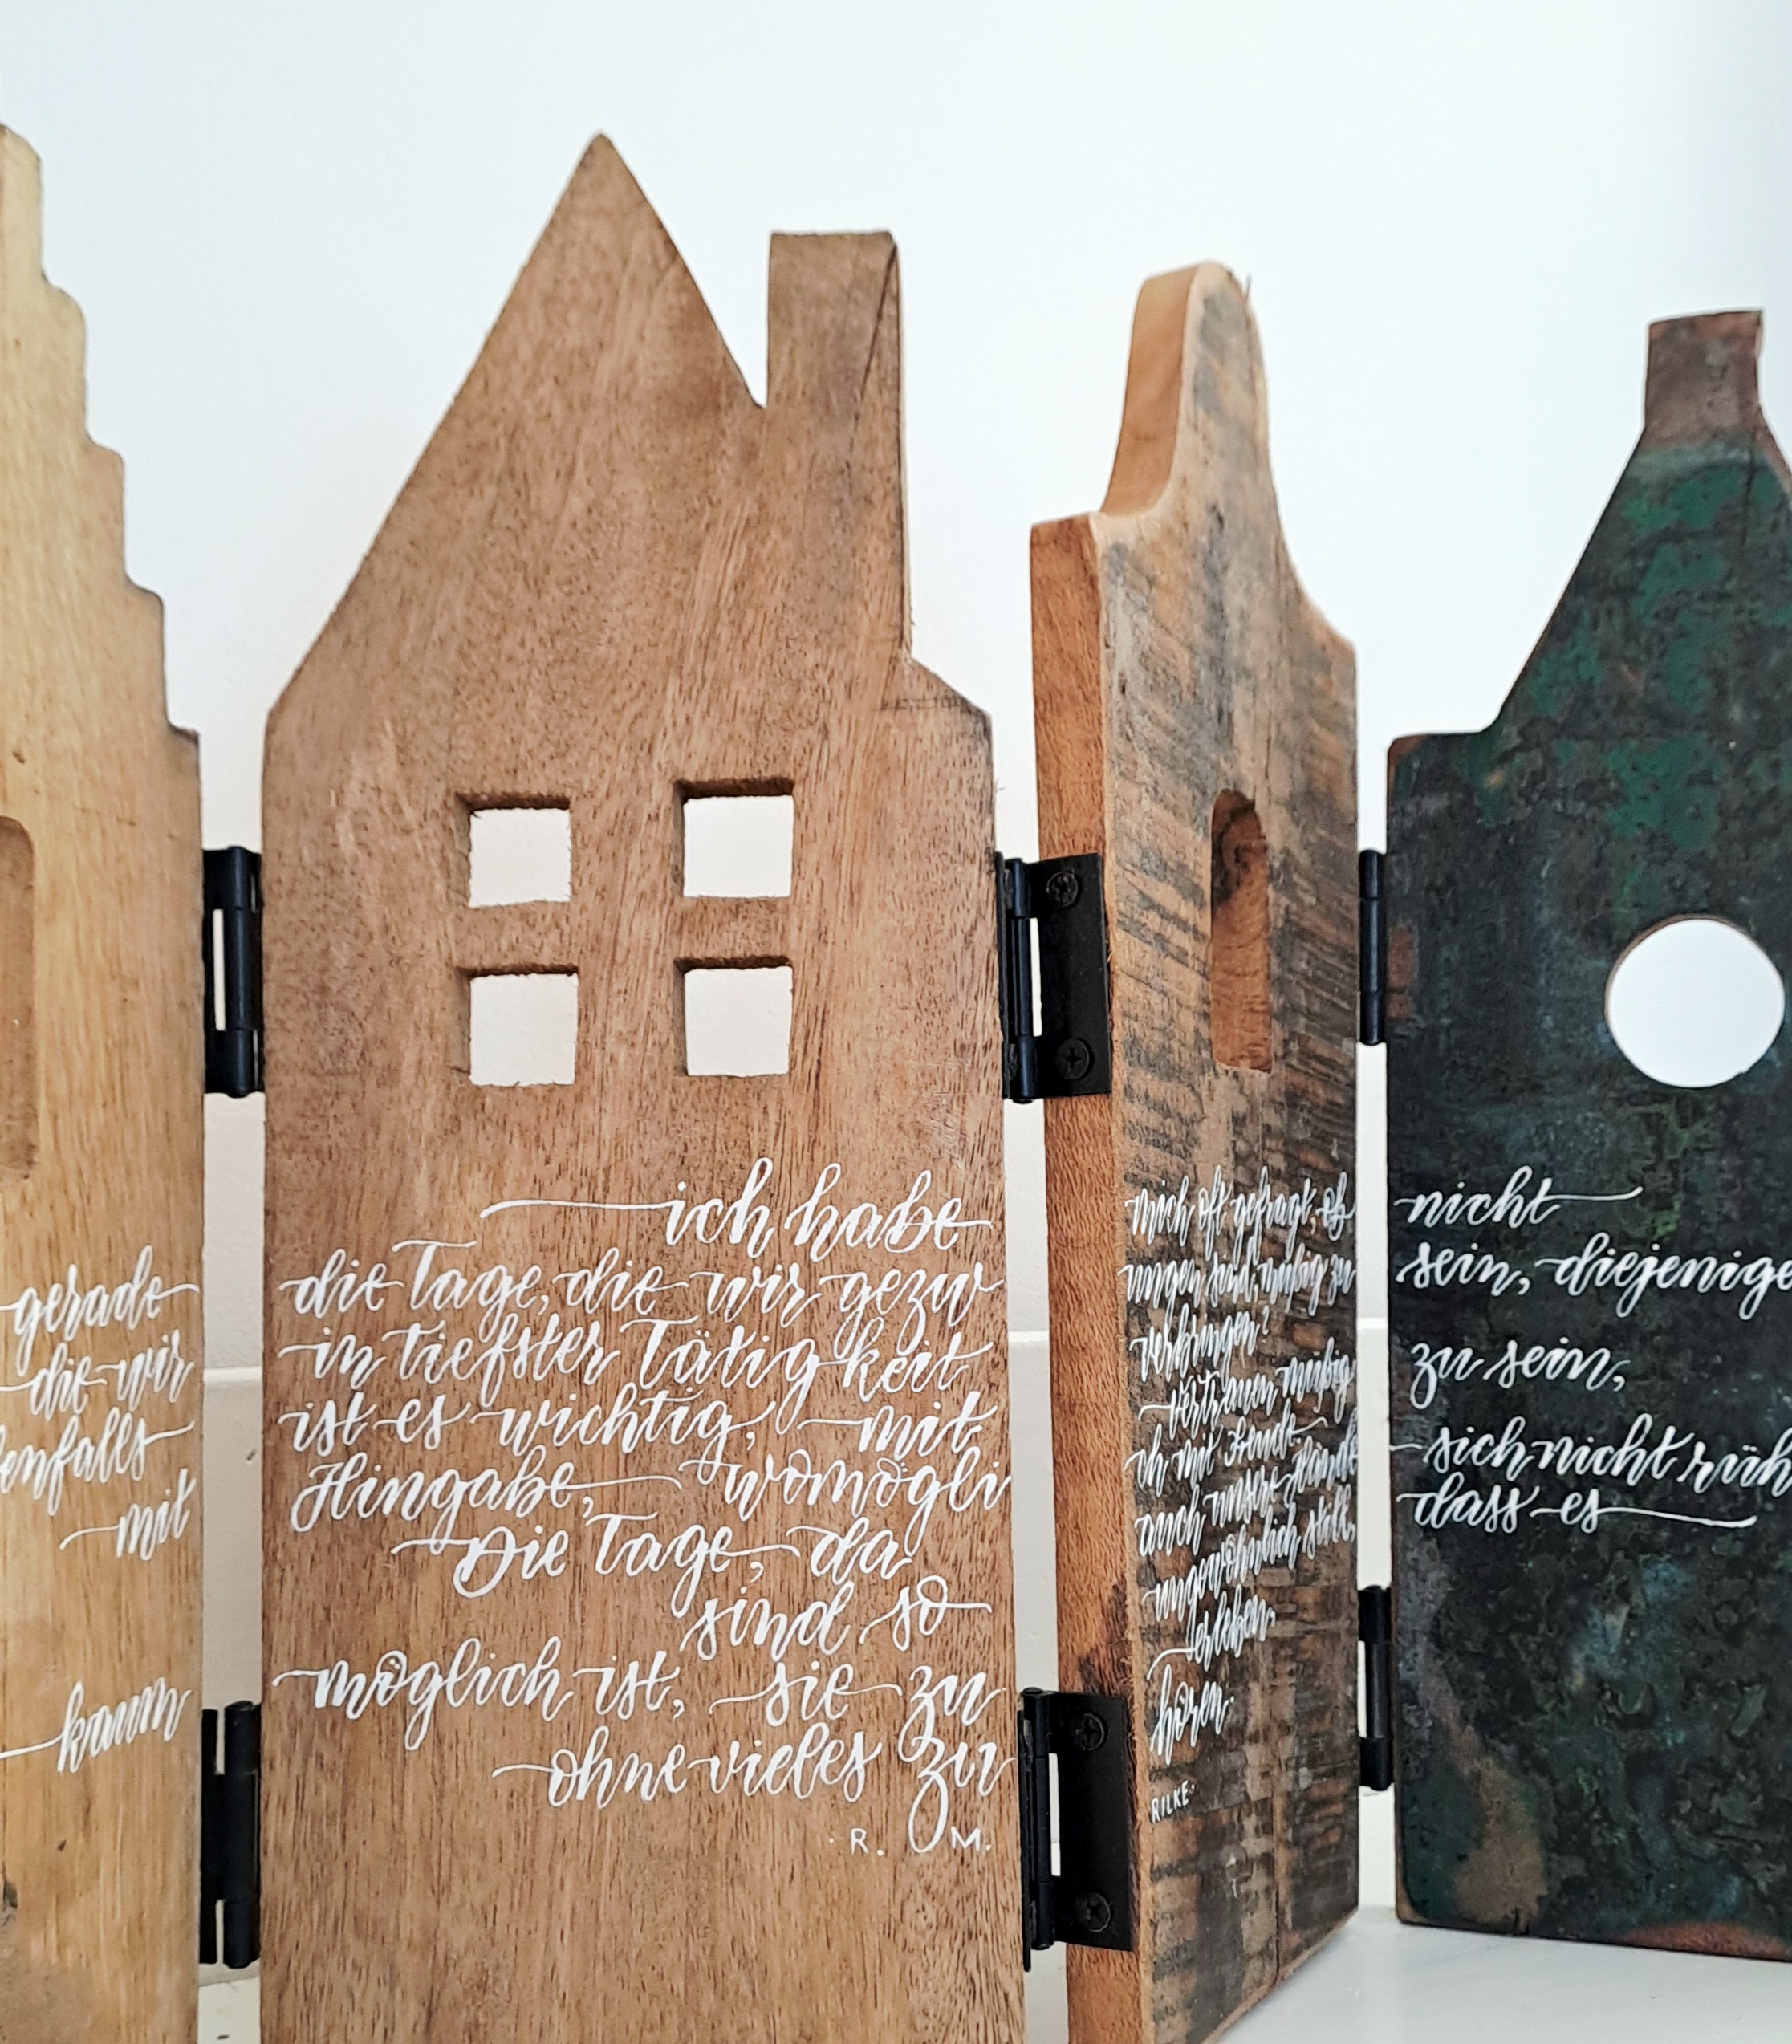 gerade
die wir
enfalls
mit
kaum
ich habe
die Tage, die wir gezw
in tiefster Tätigkeit
ist es wichtig, mit
Hingabe, womögli
Die Tage, da
sind so
möglich ist, sie zu
ohne vieles zu
· R. M.
mich oft gefragt, ob
ungen sind, müßig zu
verbringen?
Vertrauen müßig
ch mit Freude.
auch unsere Hände
ungewöhnlich still,
erleben,
hören.
RILKE·
nicht
sein, diejenige
zu sein,
sich nicht rüh
dass es